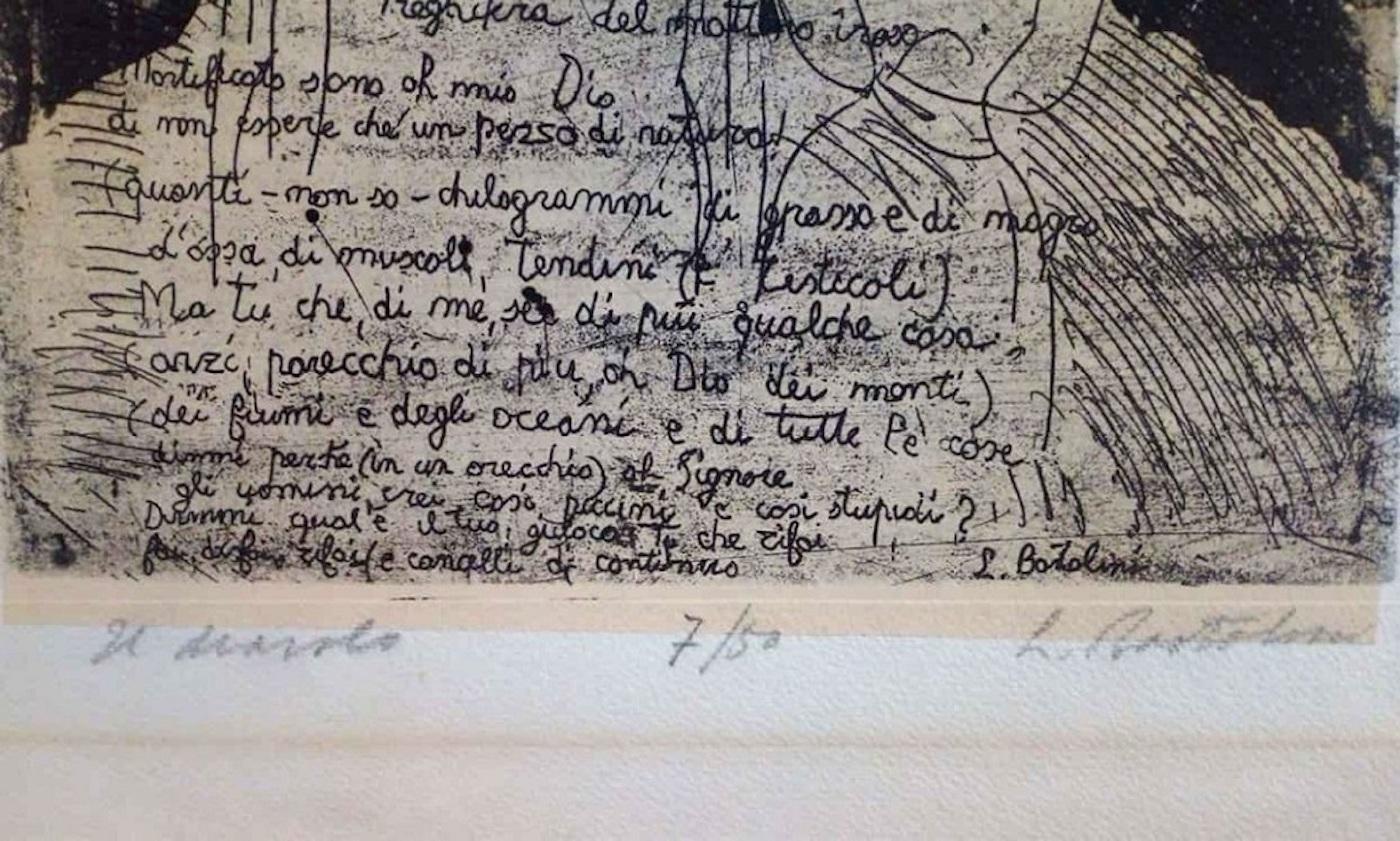 Preghiera del mattino
Mortificato sono oh mio Dio
di non essere che un pezzo di natura!
(quanti - non so - chilogrammi di grasso e di magro
d'ossa, di muscoli, tendini (e testicoli)
Ma tu che, di me, sei di più qualche cosa;
(anzi, parecchio di più, oh Dio dei monti)
(dei fiumi e degli oceani e di tutte le cose
dimmi perché (in un orecchio) oh Signore
gli uomini crei così piccini e così stupidi?
Dimmi qual'è il tuo giuoco tu che rifai
fai, disfai, rifai e cancelli di continuo
L. Bartolini
Il diavolo 7/50 L. Bartolini